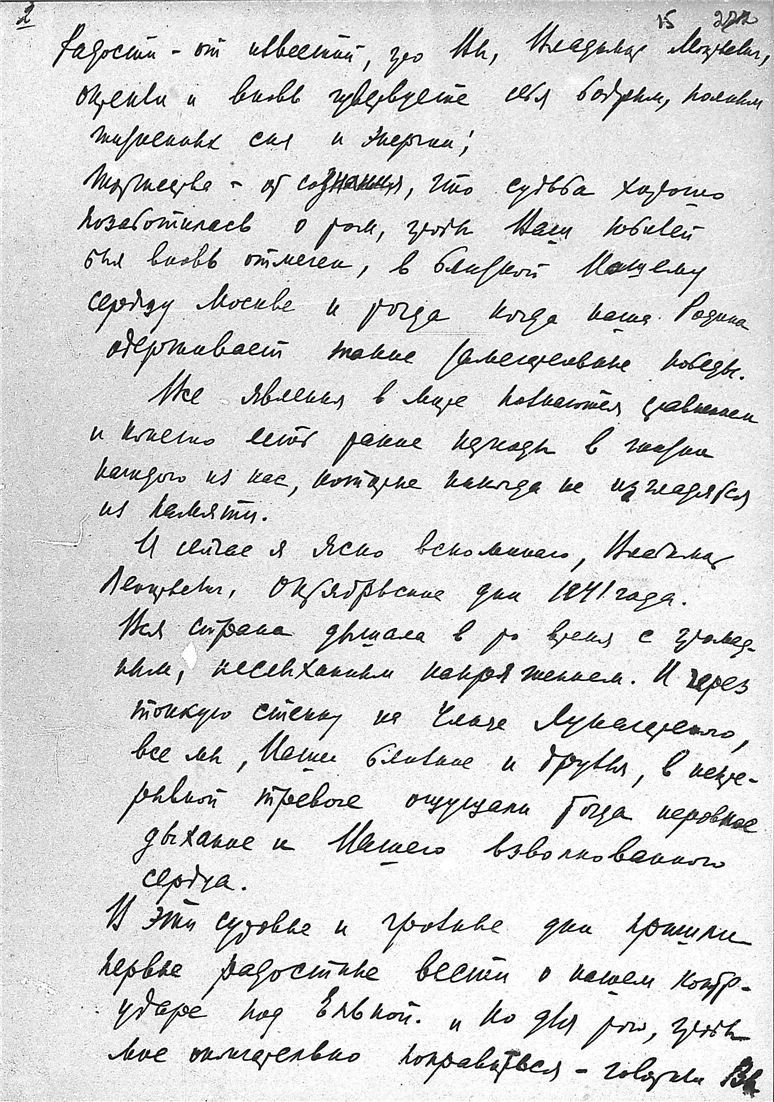 2
15
Радости - от известий, что Вы, Владимир Леонтьевич,
окрепли и вновь чувствуете себя бодрым, полным
жизненных сил и энергии;
Торжества - от сознания, что судьба хорошо
позаботилась о том, чтобы Ваш юбилей
был вновь отмечен, в близкой Вашему
сердцу Москве и тогда когда наша Родина
одерживает такие замечательные победы.
Все явления в мире познаются сравнением
и конечно есть такие периоды в жизни
каждого из нас, которые никогда не изгладятся
из памяти.
И сейчас я ясно вспоминаю, Владимир
Леонтьевич, Октябрьские дни 1941 года.
Вся страна дышала в то время с громад-
ным, неслыханным напряжением. И через
тонкую стенку на улице Луначарского,
все мы, Ваши близкие и друзья, в непре-
рывной тревоге ощущали тогда неровное
дыхание и Вашего взволнованного
сердца.
В эти суровые и грозные дни пришли
первые радостные вести о нашем контр-
ударе под Ельней. и Но для того, чтобы
мне окончательно поправиться - говорили Вы